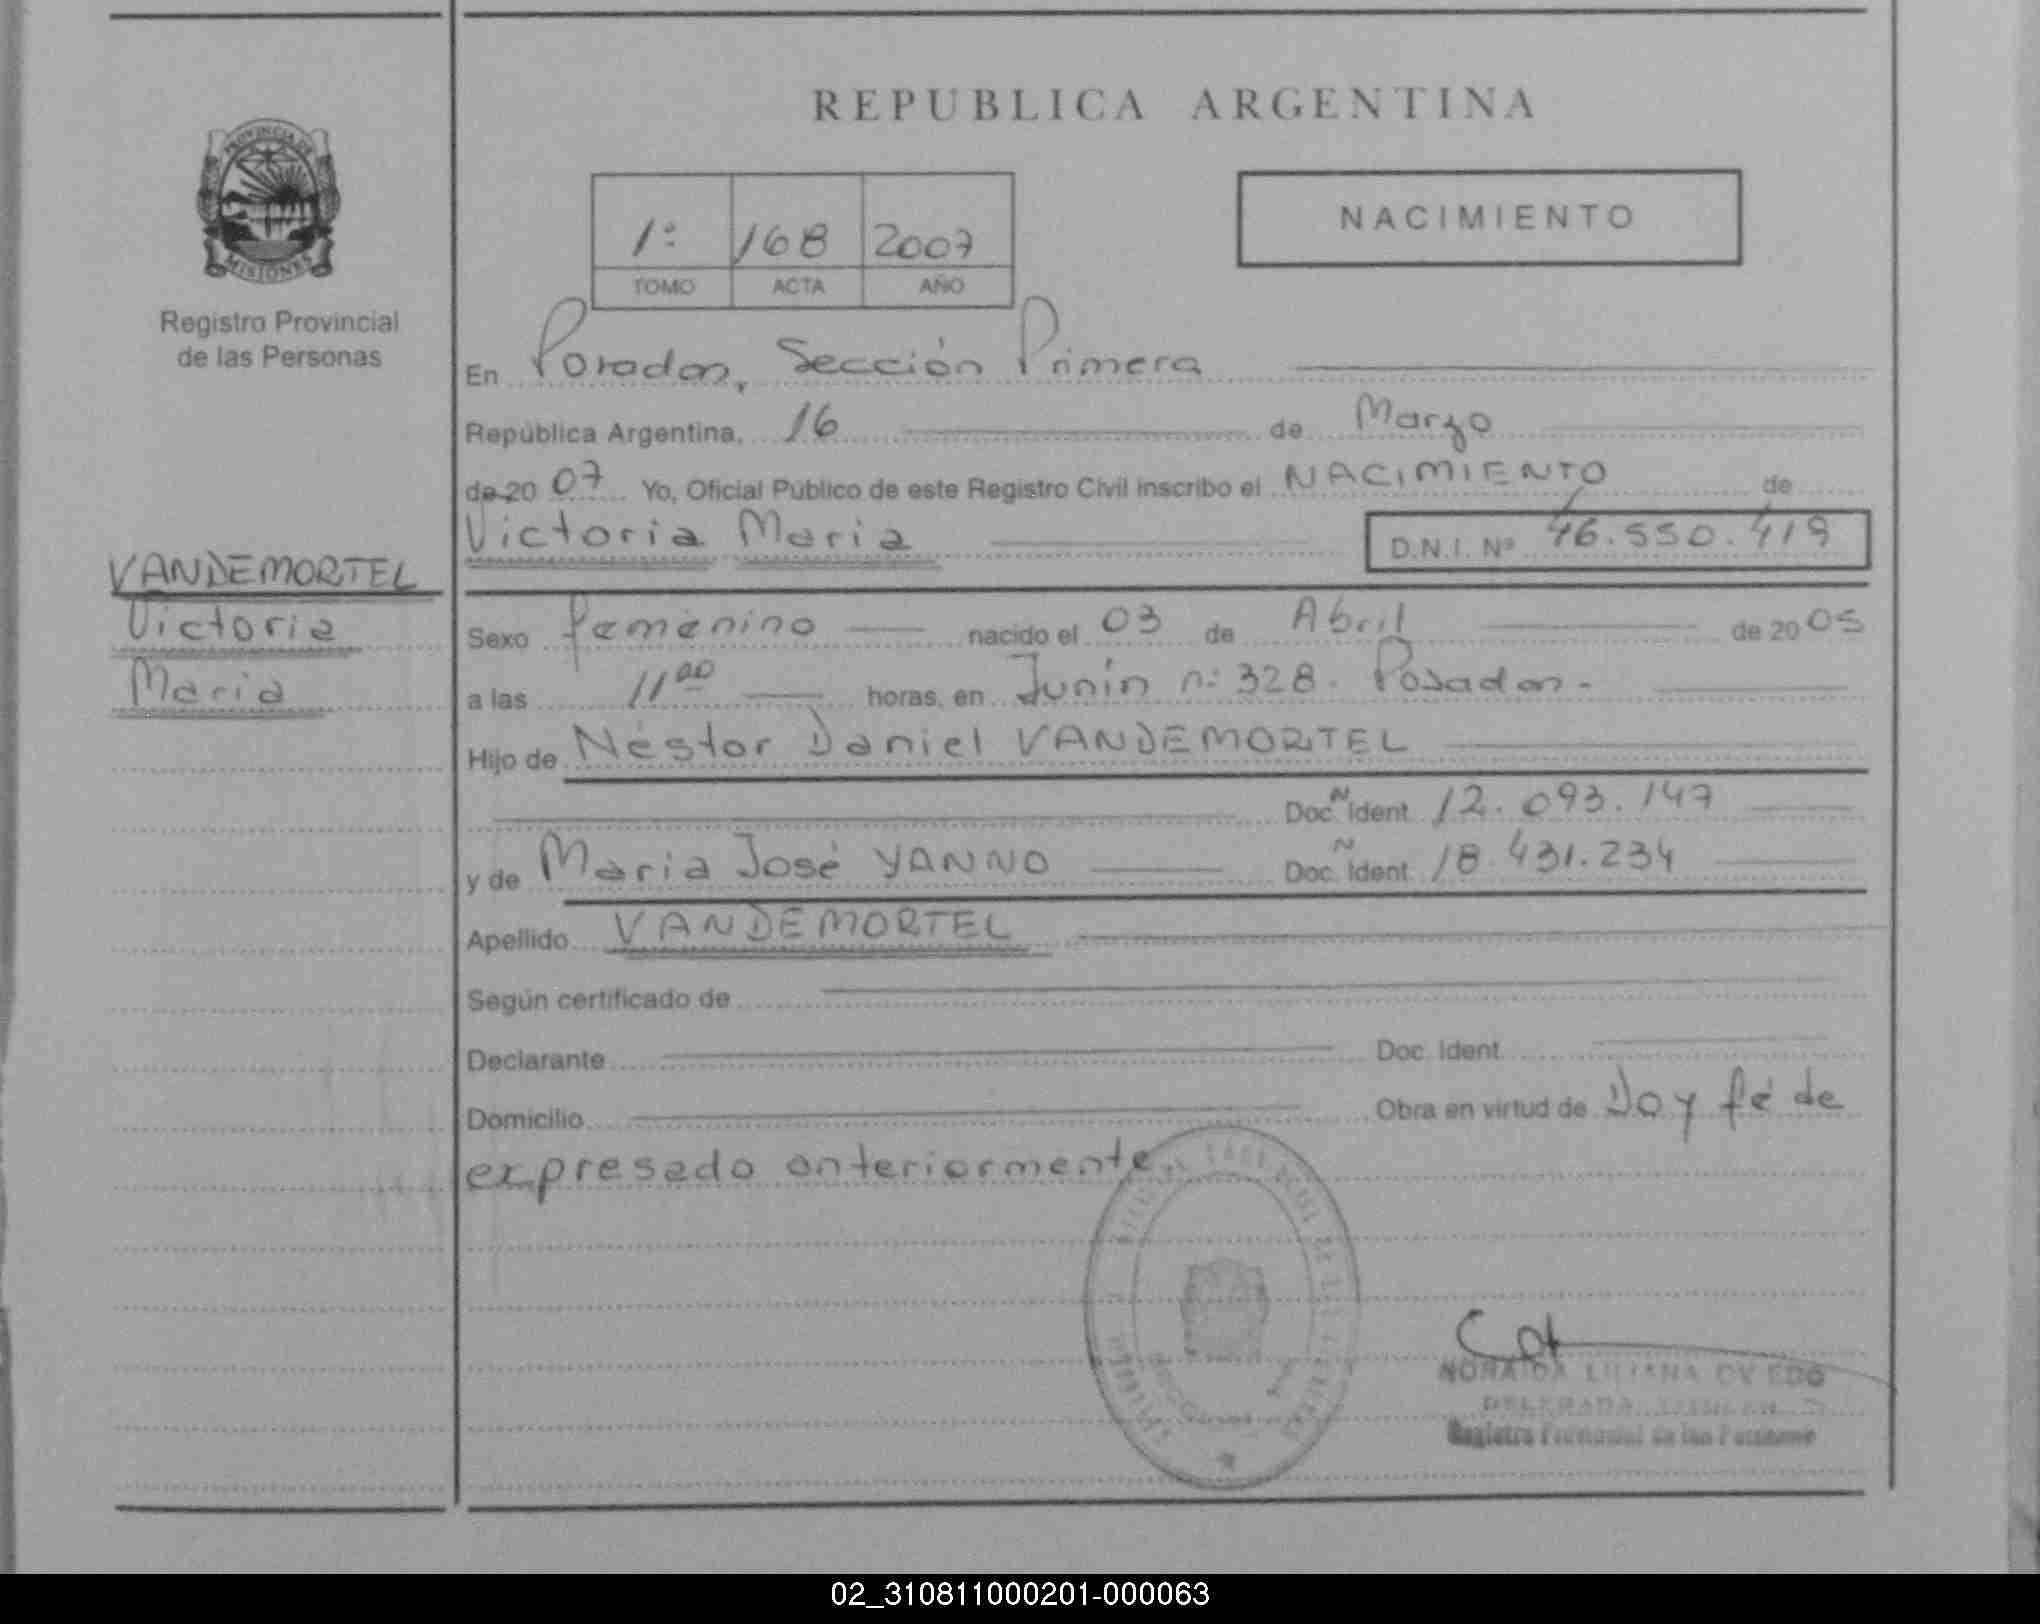 REPUBLICA ARGENTINA
PROVINCIA DE
MISIONES
Registro Provincial
de las Personas
1º 168 2007
TOMO ACTA AÑO
NACIMIENTO
En Posadas, Sección Primera
República Argentina, 16 de Marzo
de 20 07 Yo, Oficial Público de este Registro Civil inscribo el NACIMIENTO de
Victoria Maria D.N.I. Nº 46.550.419
VANDEMORTEL
Victoria
Maria
Sexo femenino nacido el 03 de Abril de 20 05
a las 11 00 horas, en Junín nº 328. Posadas.-
Hijo de Néstor Daniel VANDEMORTEL
Doc. N Ident. 12.093.147
y de Maria José YANNO Doc. N Ident. 18.431.234
Apellido VANDEMORTEL
Según certificado de
Declarante Doc. Ident.
Domicilio Obra en virtud de Doy fé de
expresado anteriormente.
NORAIDA LILIANA OVIEDO
DELEGADA TITULAR
Registro Provincial de las Personas
02_310811000201-000063